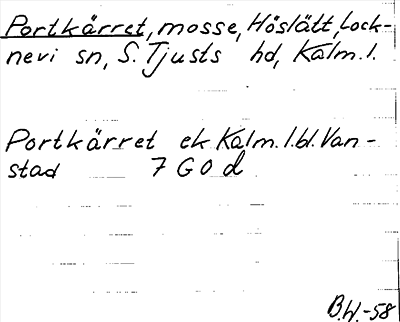 Portkärret, mosse, Höslätt, Lock-
nevi sn, S. Tjusts hd, Kalm. l.
Portkärret ek Kalm. l. bl. Van-
stad 7 G 0 d
B.W.-58